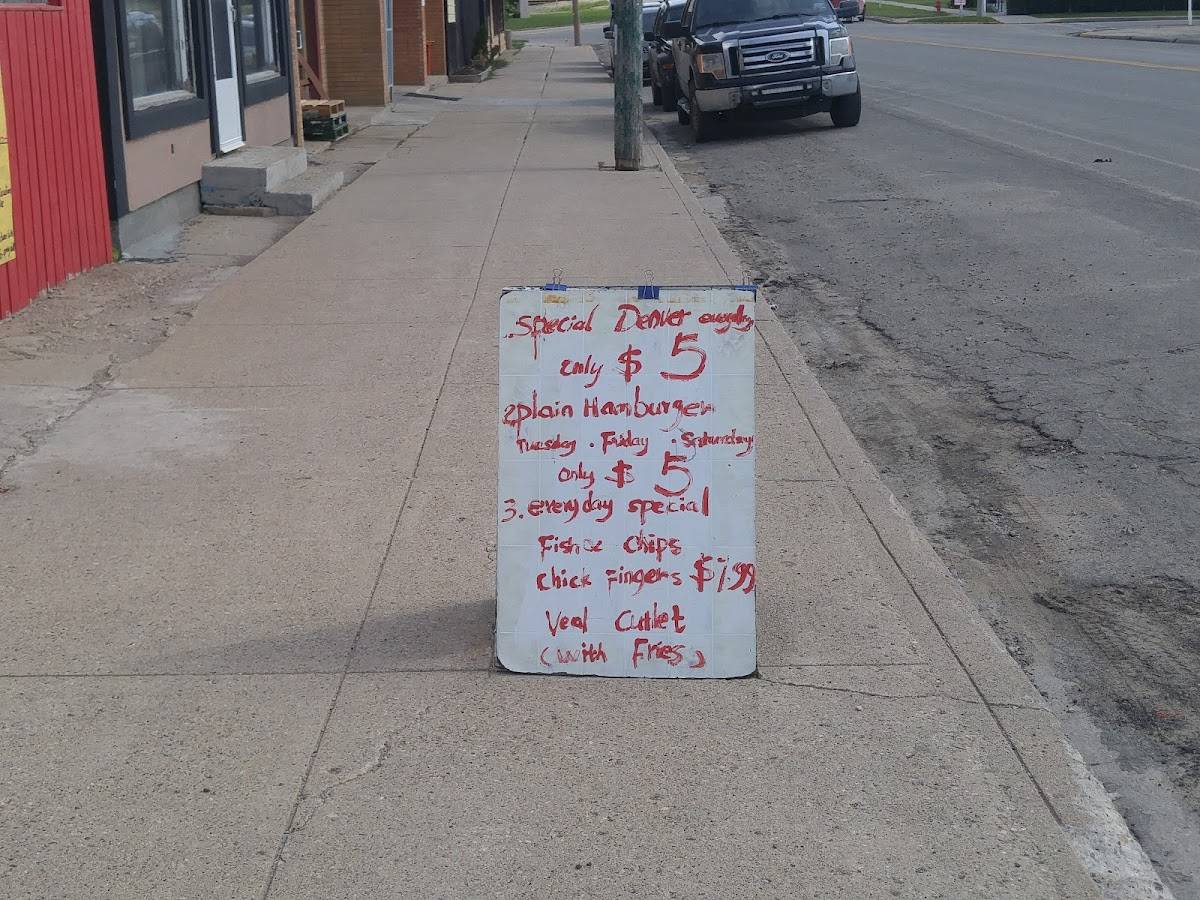 .Special Denver everyday
only $ 5
2plain Hamburger
Tuesday . Friday . Saturday
only $ 5
3. everyday special
Fish & Chips
Chick Fingers $7.99
Veal Cutlet
(with Fries)
Ford